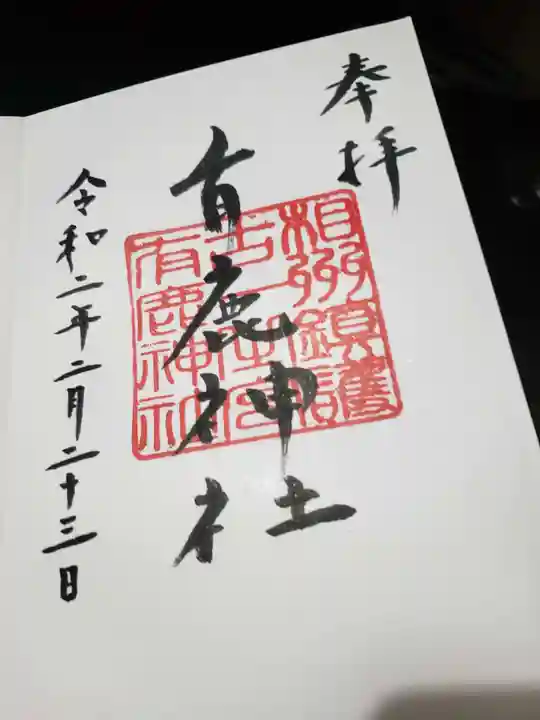 奉拝
有鹿神社
相州鎮護
有鹿神社
令和二年二月二十三日